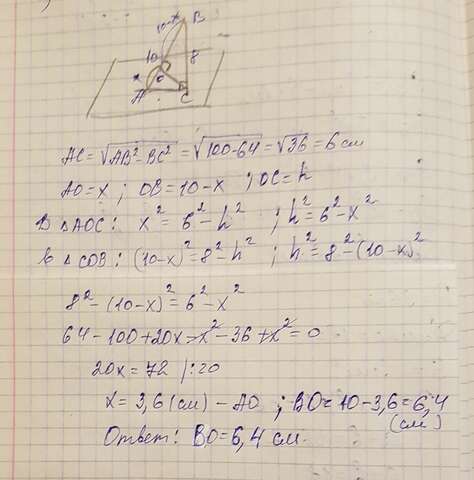 10-x B
10 8
x O
A C
AC = √AB²-BC² = √100-64 = √36 = 6 см
AO = x ; OB = 10-x ; OC = h
В △AOC: x² = 6² - h² ; h² = 6² - x²
△COB: (10-x)² = 8² - h² ; h² = 8² - (10-x)²
8² - (10-x)² = 6² - x²
64 - 100 + 20x - x² - 36 + x² = 0
20x = 72 |:20
x = 3,6 (см) - AO ; BO = 10 - 3,6 = 6,4
(см)
Ответ: BO = 6,4 см.